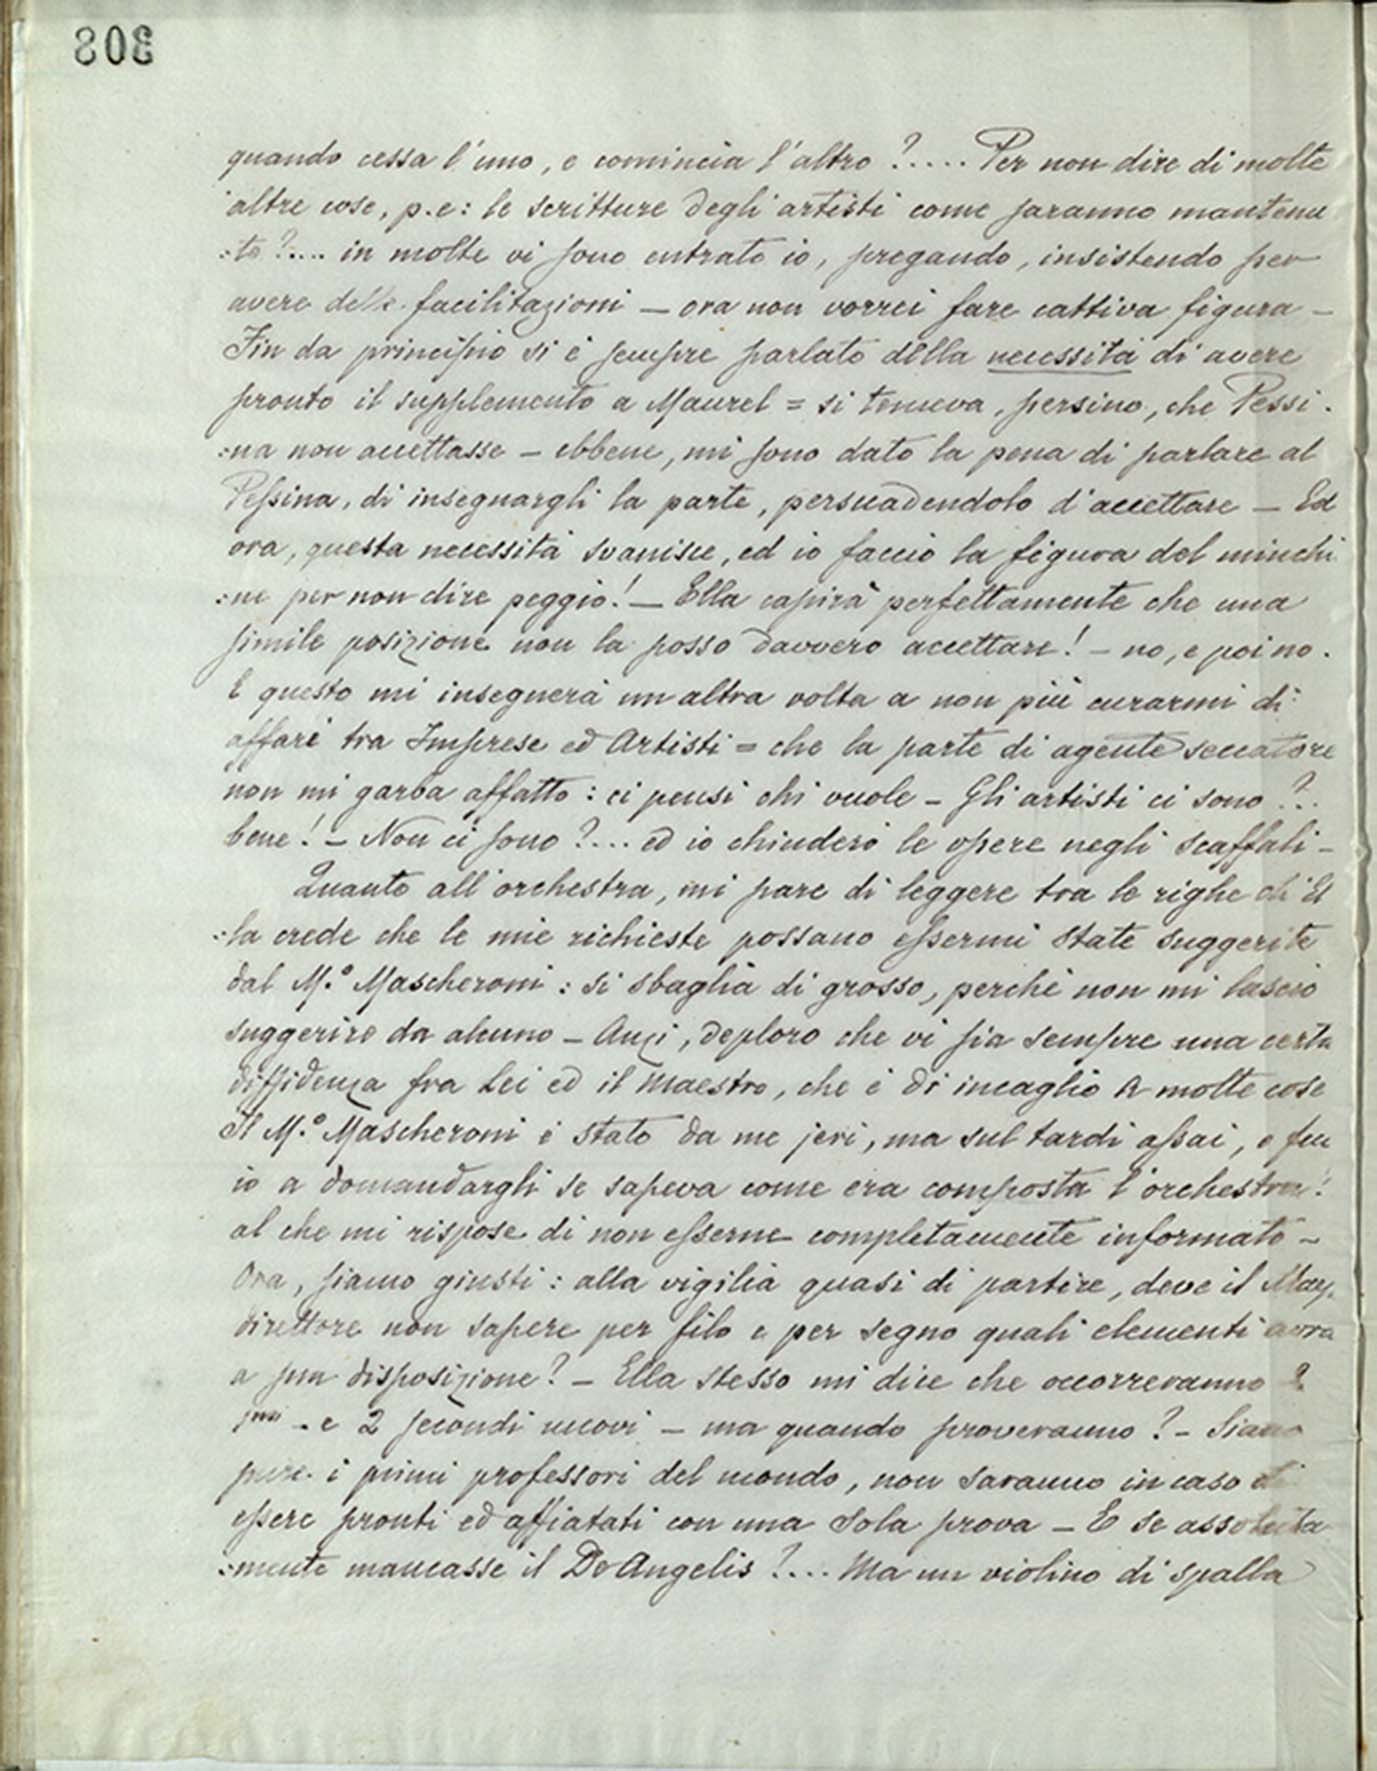 308
quando cessa l'uno, e comincia l'altro?..... Per non dire di molte
altre cose, p.e: le scritture degli artisti come saranno mantenu
:te?.... in molte vi sono entrato io, pregando, insistendo per
avere delle facilitazioni — ora non vorrei fare cattiva figura —
Fin da principio si è sempre parlato della necessità di avere
pronto il supplemento a Maurel = si temeva, persino, che Pessi.
:na non accettasse — ebbene, mi sono dato la pena di parlare al
Pessina, di insegnargli la parte, persuadendolo d'accettare — Ed
ora, questa necessità svanisce, ed io faccio la figura del minchi
:ne per non dire peggio! — Ella capirà perfettamente che una
simile posizione non la posso davvero accettare! — no, e poi no.
E questo mi insegnerà un altra volta a non più curarmi di
affari tra Imprese ed Artisti = che la parte di agente seccatore
non mi garba affatto: ci pensi chi vuole — Gli artisti ci sono?..
bene! — Non ci sono?... ed io chiuderò le opere negli scaffali —
Quanto all'orchestra, mi pare di leggere tra le righe ch'El
:la crede che le mie richieste possano essermi state suggerite
dal M.o Mascheroni: si sbaglia di grosso, perchè non mi lascio
suggerire da alcuno — Anzi, deploro che vi sia sempre una certa
diffidenza fra Lei ed il Maestro, che è di incaglio a molte cose
Il M.o Mascheroni è stato da me jeri, ma sul tardi assai, e fui
io a domandargli se sapeva come era composta l'orchestra!
al che mi rispose di non esserne completamente informato —
Ora, siamo giusti: alla vigilia quasi di partire, deve il
direttore non sapere per filo e per segno quali elementi avrà
a sua disposizione? — Ella stesso mi dice che occorreranno 2
pmi — e 2 secondi nuovi — ma quando proveranno? — Siano
pure i primi professori del mondo, non saranno in caso di
essere pronti ed affiatati con una sola prova — E se assoluta
:mente mancasse il De Angelis?.... Ma un violino di spalla